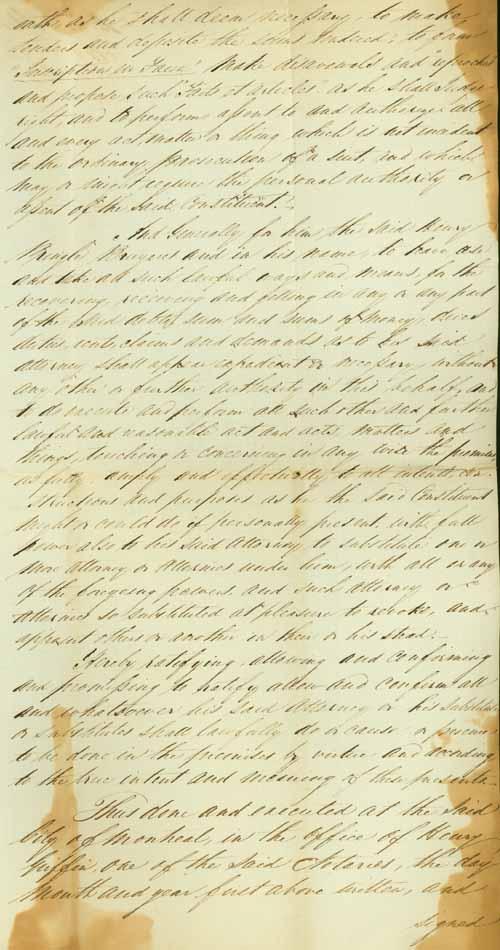 oath, as he shall deem necessary, to make
tenders and deposite the sums tendered; to claim
"Inscription en Faux", make disavowals and
and propose such "Faits et articles" as he shall judge
right, and to perform, assent to and authorize all
and every act, matter or thing which is not incident
to the ordinary prosecution of a suit, and which
may or might require the personal authority or
assent of the said Constituent.
And Generally for him the said Henry
and in his name, to have use
and take all such lawful ways and means, for the
recovering, receiving and getting in any or any part
of the said debts, sum and sums of money, dues
duties, rents, claims and demands as to his said
attorney shall appear expedient or necessary, without
any other or further authority in this behalf, and
to do execute and perform all such other and further
lawful and reasonable act and acts, matters and
things, touching or concerning in any wise the premises
as fully, amply and effectually to all intents, con-
structions and purposes as he the said Constituent
might or could do if personally present, with full
power also to his said Attorney to substitute one or
more attorney or attornies under him, with all or any
of the foregoing powers and such attorney or
attornies so substituted at pleasure to revoke, and
appoint others or another in their or his stead:
Hereby ratifying, allowing and confirming
and promissing to ratify, allow and confirm all
and whatsoever his said Attorney or his substitute
or substitutes shall lawfully do or cause or procure
to be done in the premises by virtue and according
to the true intent and meaning of these presents.
Thus done and executed at the said
City of Montreal, in the office of Henry
Griffin, one of the said Notaries, the day
Month and year first above written, and
signed